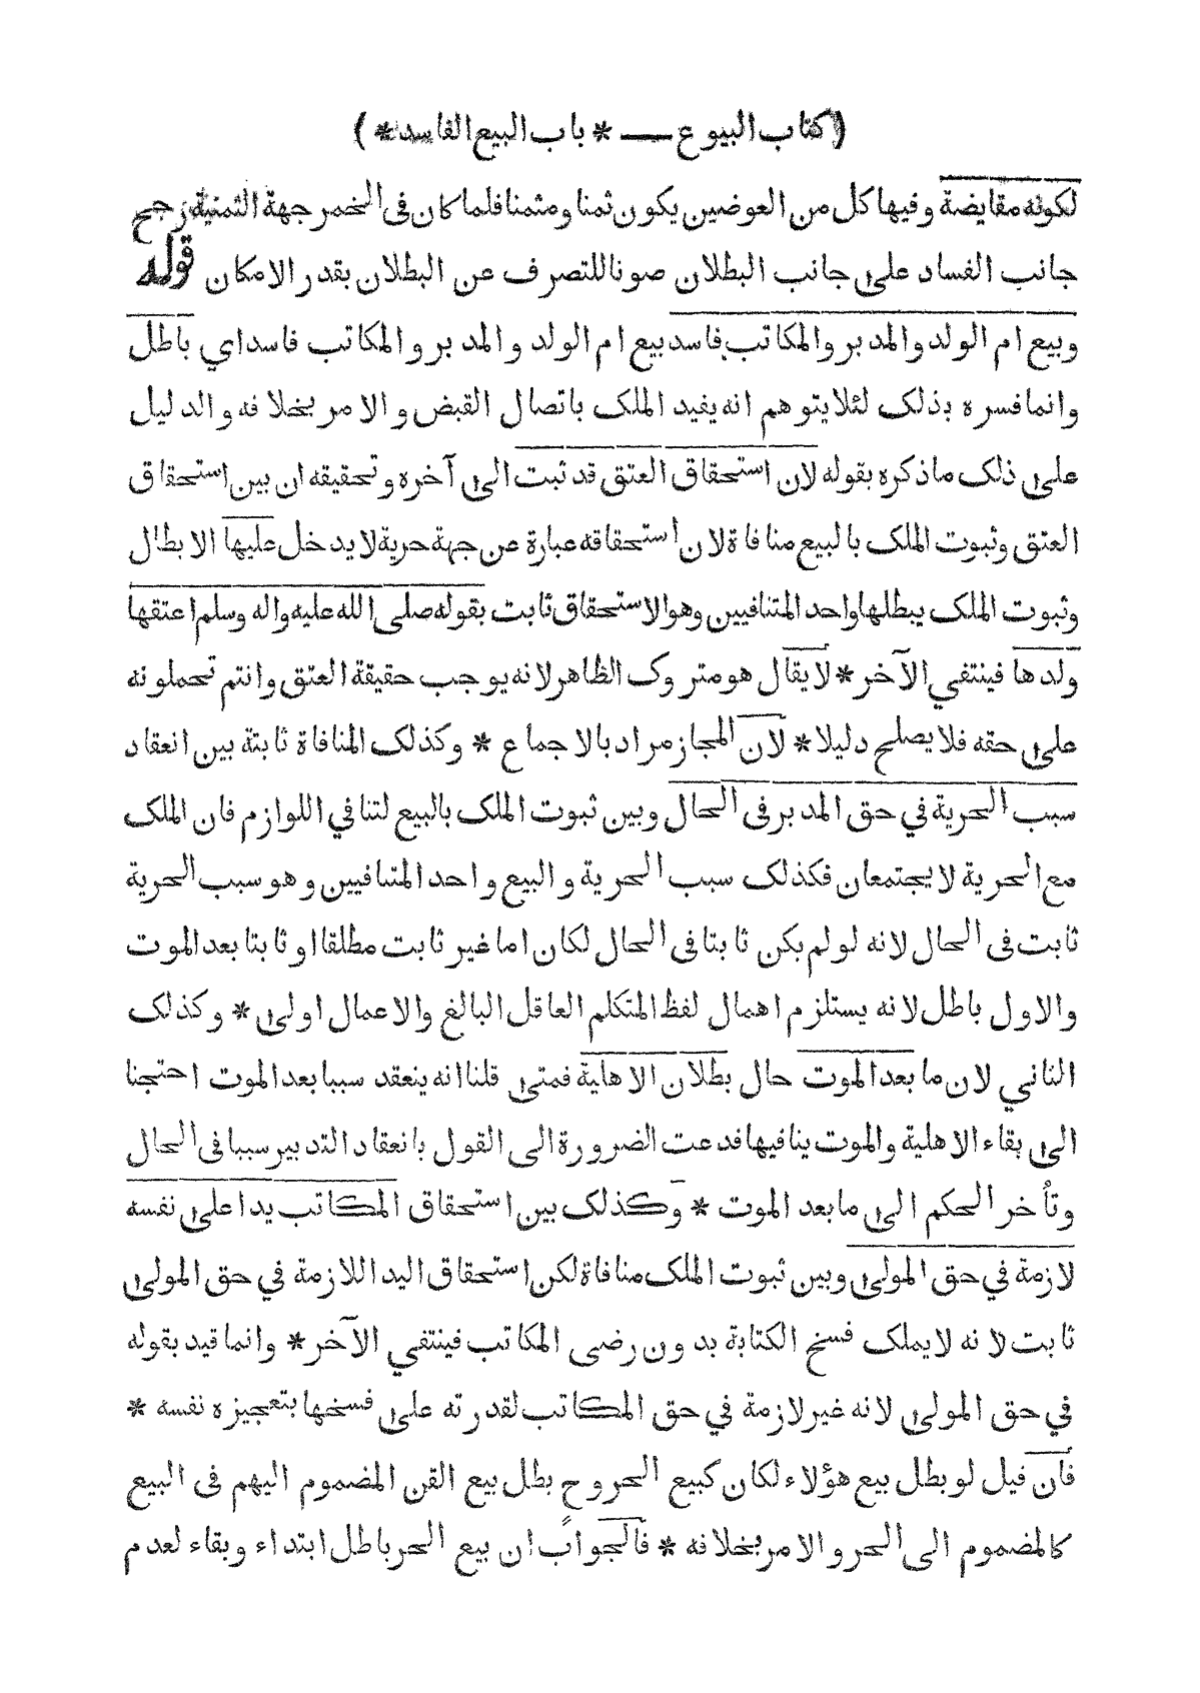 (كتاب البيوع — * باب البيع الفاسد * )
لكونه مقايضة وفيها كل من العوضين يكون ثمنا ومثمنا فلما كان فى الخمر جهة الثمنية رجح
جانب الفساد على جانب البطلان صونا للتصرف عن البطلان بقدر الامكان قوله
وبيع ام الولد والمدبر والمكاتب فاسد بيع ام الولد والمدبر والمكاتب فاسد اي باطل
وانما فسره بذلك لئلا يتوهم انه يفيد الملك باتصال القبض والامر بخلافه والدليل
على ذلك ما ذكره بقوله لان استحقاق العتق قد ثبت الى آخره وتحقيقه ان بين استحقاق
العتق وثبوت الملك بالبيع منافاة لان استحقاقه عبارة عن جهة حرية لا يدخل عليها الابطال
وثبوت الملك يبطلها واحد المتنافيين وهو الاستحقاق ثابت بقوله صلى الله عليه واله وسلم اعتقها
ولدها فينتفي الآخر * لا يقال هو متروك الظاهر لانه يوجب حقيقة العتق وانتم تحملونه
على حقه فلا يصلح دليلا * لان المجاز مراد بالاجماع * وكذلك المنافاة ثابتة بين انعقاد
سبب الحرية في حق المدبر فى الحال وبين ثبوت الملك بالبيع لتنافي اللوازم فان الملك
مع الحرية لا يجتمعان فكذلك سبب الحرية والبيع واحد المتنافيين وهو سبب الحرية
ثابت فى الحال لانه لو لم يكن ثابتا فى الحال لكان اما غير ثابت مطلقا او ثابتا بعد الموت
والاول باطل لانه يستلزم اهمال لفظ المتكلم العاقل البالغ والاعمال اولى * وكذلك
الثاني لان ما بعد الموت حال بطلان الاهلية فمتى قلنا انه ينعقد سببا بعد الموت احتجنا
الى بقاء الاهلية والموت ينافيها فدعت الضرورة الى القول بانعقاد التدبير سببا فى الحال
وتأخر الحكم الى ما بعد الموت * وكذلك بين استحقاق المكاتب يدا على نفسه
لازمة في حق المولى وبين ثبوت الملك منافاة لكن استحقاق اليد اللازمة في حق المولى
ثابت لانه لا يملك فسخ الكتابة بدون رضى المكاتب فينتفي الآخر * وانما قيد بقوله
في حق المولى لانه غير لازمة في حق المكاتب لقدرته على فسخها بتعجيزه نفسه *
فان قيل لو بطل بيع هؤلاء لكان كبيع الحر وح بطل بيع القن المضموم اليهم فى البيع
كالمضموم الى الحر والامر بخلافه * فالجواب ان بيع الحر باطل ابتداء وبقاء لعدم